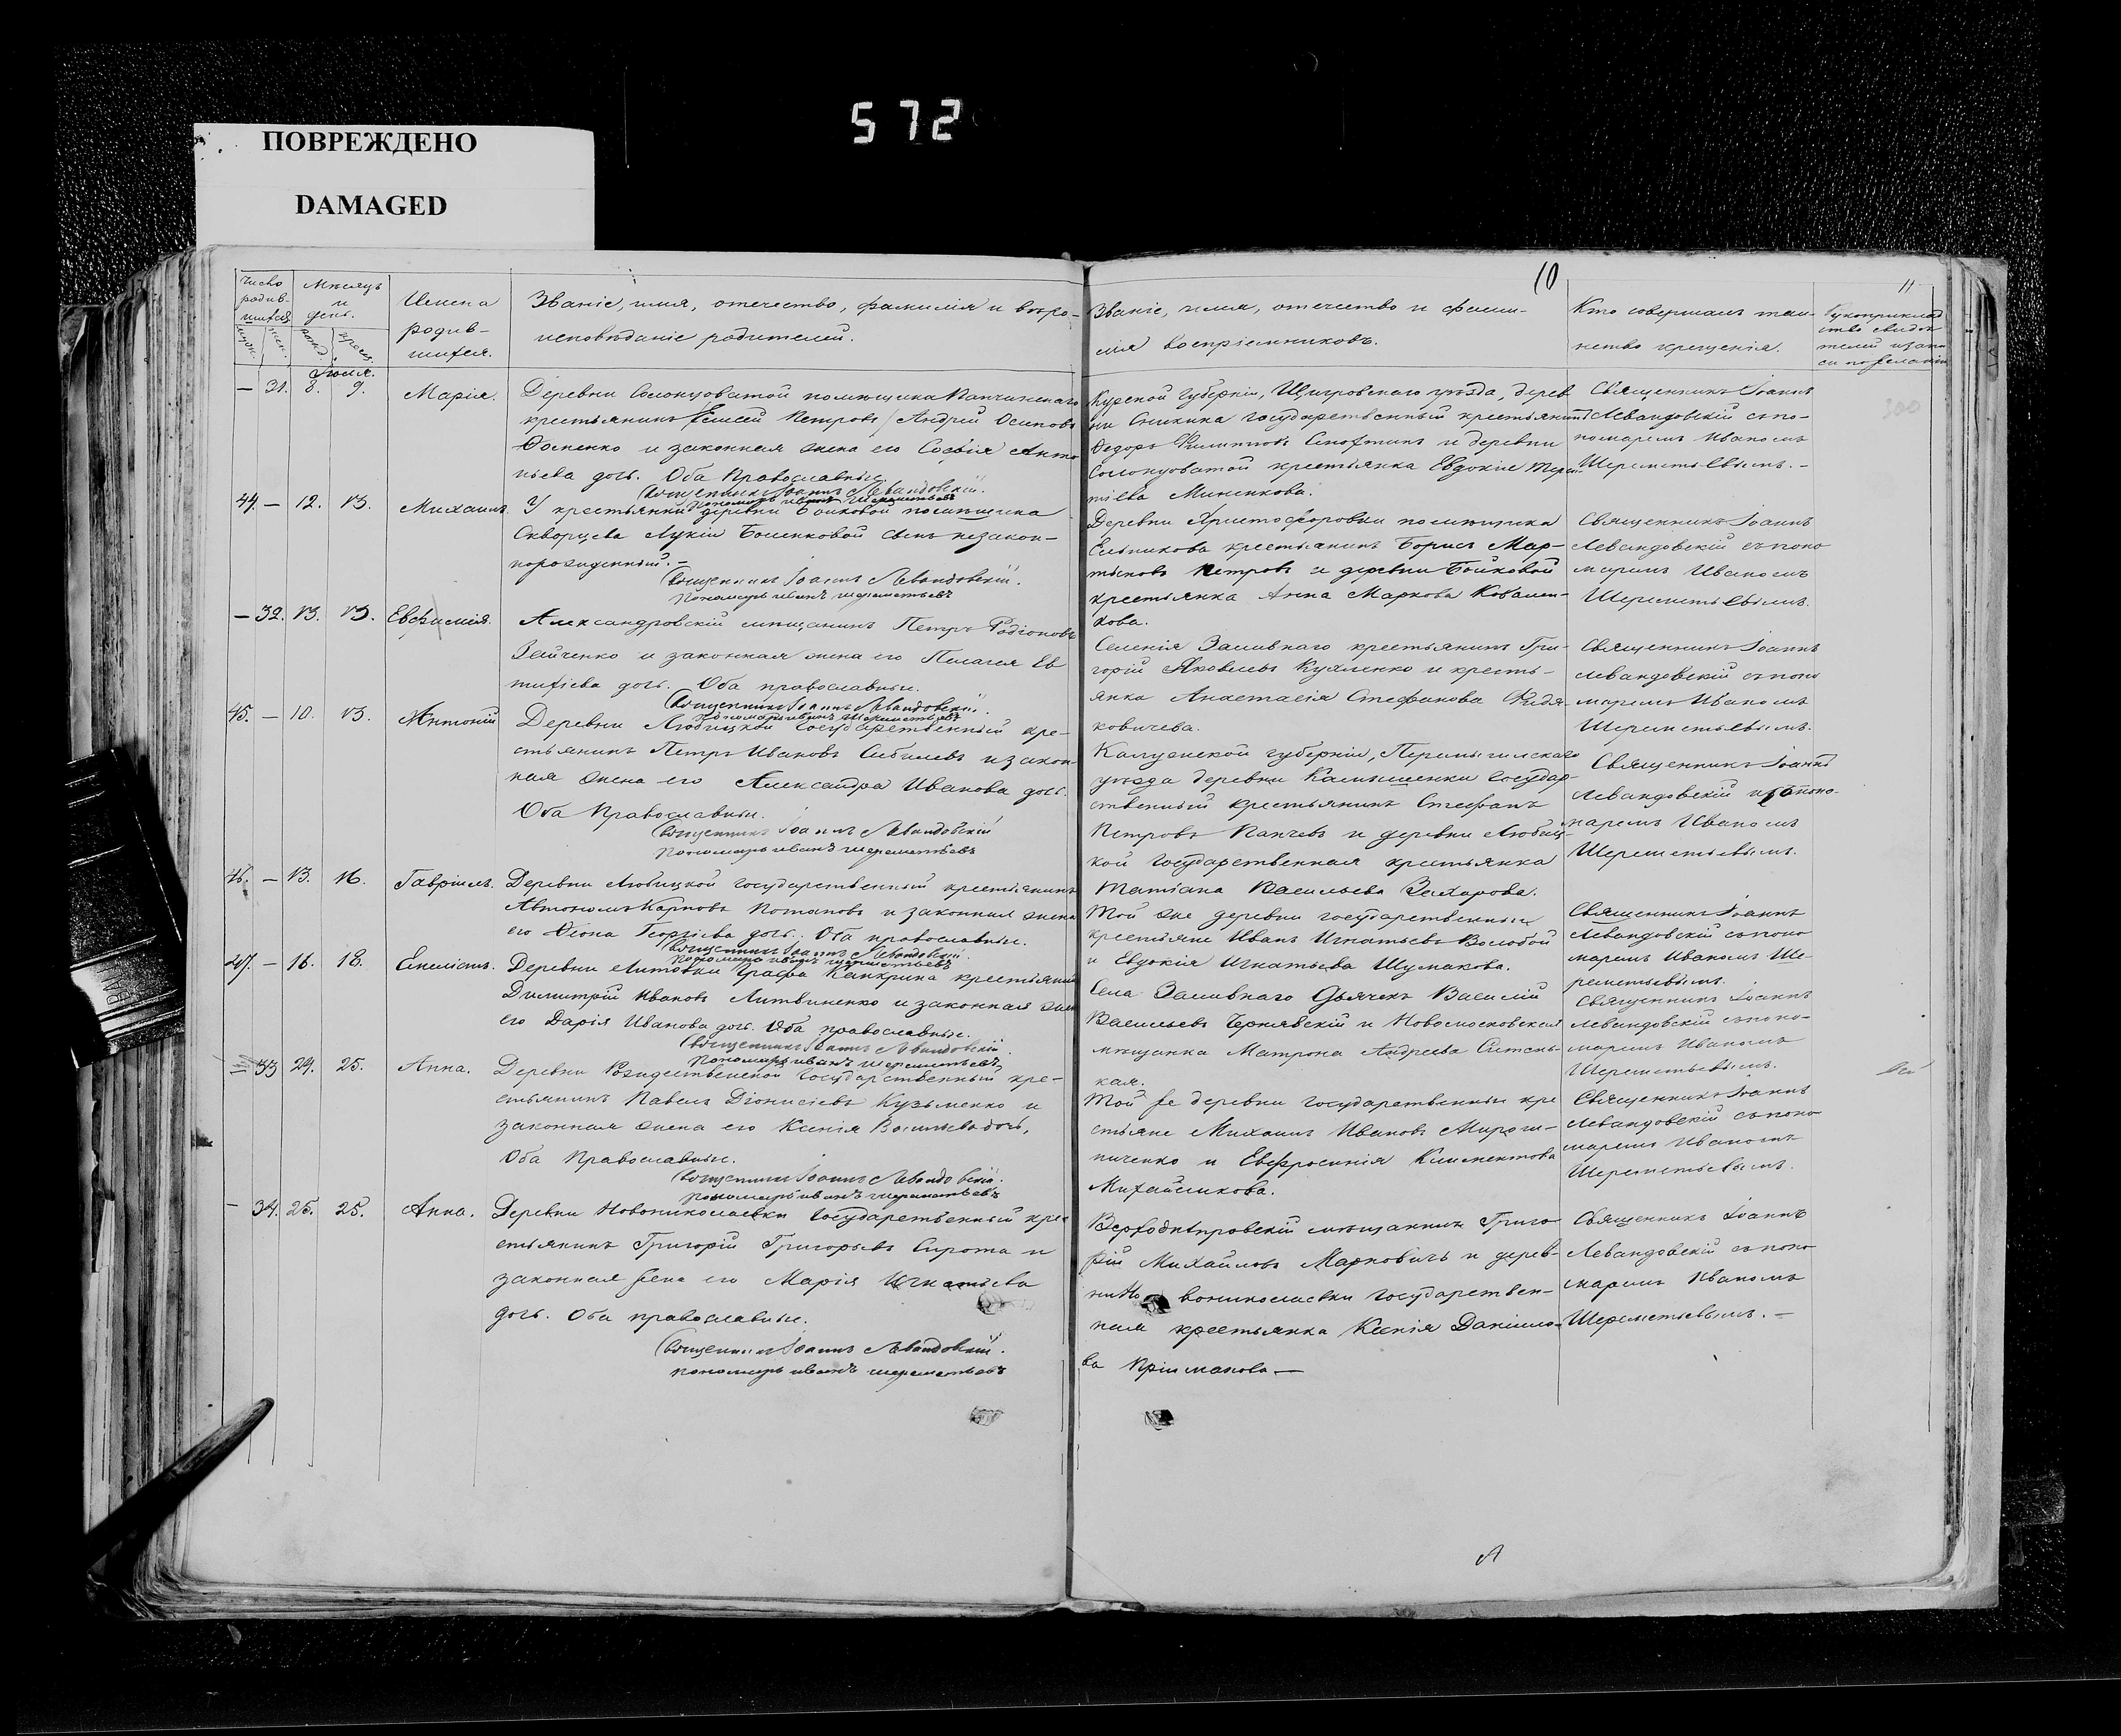 572
ПОВРЕЖДЕНО
DAMAGED
10
11
Число родив-шихся
муж. жен.
Мѣсяцъ и день.
рожд. крещ.
Имена родив-шихся.
Званіе, имя, отечество, фамилія и вѣро-
исповѣданіе родителей.
Званіе, имя, отечество и фами-
лія воспріемниковъ.
Кто совершалъ таи-
нство крещенія.
Рукоприклад
ство свидѣ
телей
Іюля.
— 31. 8. 9. Марія.
Деревни Солонцоватой помѣщика Панчинскаго
крестьянинъ Елисей Петровъ / Андрей Осиповъ
и законная жена его Софія Анто
ньева дочь. Оба Православные.
Священникъ Іоаннъ Левандовскій.
Пономарь Иванъ Шереметьевъ
Курской Губерніи, Щигровскаго уѣзда, дерев
государственный крестьянинъ
Ѳедоръ Филипповъ и деревни
Солонцоватой крестьянка Евдокія Терен
тіева Миненкова.
Священникъ Іоаннъ
Левандовскій съ по-
номаремъ Иваномъ
Шереметьевымъ. -
44. — 12. 13. Михаилъ.
У крестьянки деревни Бойковой помѣщика
Скворцева Лукіи Боменковой сынъ незакон-
норожденный. -
Священникъ Іоаннъ Левандовскій.
Пономарь Иванъ Шереметьевъ
Деревни Христофоровки помѣщика
Ельникова крестьянинъ Борисъ Мар-
тыновъ Петровъ и деревни Бойковой
крестьянка Анна Маркова Ковален-
кова.
Священникъ Іоаннъ
Левандовскій съ поно
маремъ Иваномъ
Шереметьевымъ.
— 32. 13. 13. Евфимія.
Александровскій мѣщанинъ Петръ Родіоновъ
Зайченко и законная жена его Пелагея Ев
тихіева дочь. Оба православные.
Священникъ Іоаннъ Левандовскій.
Пономарь Иванъ Шереметьевъ
Селенія Заливнаго крестьянинъ Гри-
горій Яковлевъ Кухленко и кресть-
янка Анастасія Стефанова
ковичева.
Священникъ Іоаннъ
Левандовскій съ поно
маремъ Иваномъ
Шереметьевымъ.
45. — 10. 13. Антоній
Деревни Любицкой государственный кре-
стьянинъ Петръ Ивановъ Сибилевъ и закон-
ная жена его Александра Иванова дочь.
Оба Православные.
Священникъ Іоаннъ Левандовскій
Пономарь Иванъ Шереметьевъ
Калужской губерніи, Перемышльскаго
уѣзда деревни Камышенки государ-
ственный крестьянинъ Стефанъ
Петровъ Панчевъ и деревни Любиц-
кой государственная крестьянка
Татіана Васильева Захарова.
Священникъ Іоаннъ
Левандовскій съ поно-
маремъ Иваномъ
Шереметьевымъ.
46. — 13. 16. Гавріилъ.
Деревни Любицкой государственный крестьянинъ
Автономъ Карповъ Потаповъ и законная жена
его Георгіева дочь. Оба православные.
Священникъ Іоаннъ Левандовскій.
Пономарь Иванъ Шереметьевъ
Той же деревни государственные
крестьяне Иванъ Игнатьевъ Волобой
и Евдокія Игнатьева Шумакова.
Священникъ Іоаннъ
Левандовскій съ поно
маремъ Иваномъ Ше-
реметьевымъ.
47. — 16. 18. Емеліанъ.
Деревни Литовки Графа Канкрина крестьянинъ
Димитрій Ивановъ Литвиненко и законная жен
его Дарія Иванова дочь. Оба православные.
Священникъ Іоаннъ Левандовскій.
Пономарь Иванъ Шереметьевъ
Села Заливнаго Дьячекъ Василій
Васильевъ Чернявскій и Новомосковская
мѣщанка Матрона Андреева Ситень-
кая.
Священникъ Іоаннъ
Левандовскій съ поно-
маремъ Иваномъ
Шереметьевымъ.
— 33 24. 25. Анна.
Деревни Рождественской Государственный кре-
стьянинъ Павелъ Діонисіевъ Кузьменко и
законная жена его Ксенія Васильева дочь,
Оба Православные.
Священникъ Іоаннъ Левандовскій.
Пономарь Иванъ Шереметьевъ
Той же деревни государственные кре
стьяне Михаилъ Ивановъ Мирош-
ниченко и Евфросинія Климентова
Михайликова.
Священникъ Іоаннъ
Левандовскій съ поно
маремъ Иваномъ
Шереметьевымъ.
— 34. 25. 25. Анна.
Деревни Новониколаевки Государственный кре
стьянинъ Григорій Григорьевъ Сирота и
законная жена его Марія Игнатьева
дочь. Оба православные.
Священникъ Іоаннъ Левандовскій.
Пономарь Иванъ Шереметьевъ
Верходнѣпровскій мѣщанинъ Григо
рій Михайловъ Марковичъ и дерев-
ни Но вониколаевки государствен-
ная крестьянка Ксенія Даніило-
ва Пріймакова —
Священникъ Іоаннъ
Левандовскій съ поно
маремъ Иваномъ
Шереметьевымъ. -